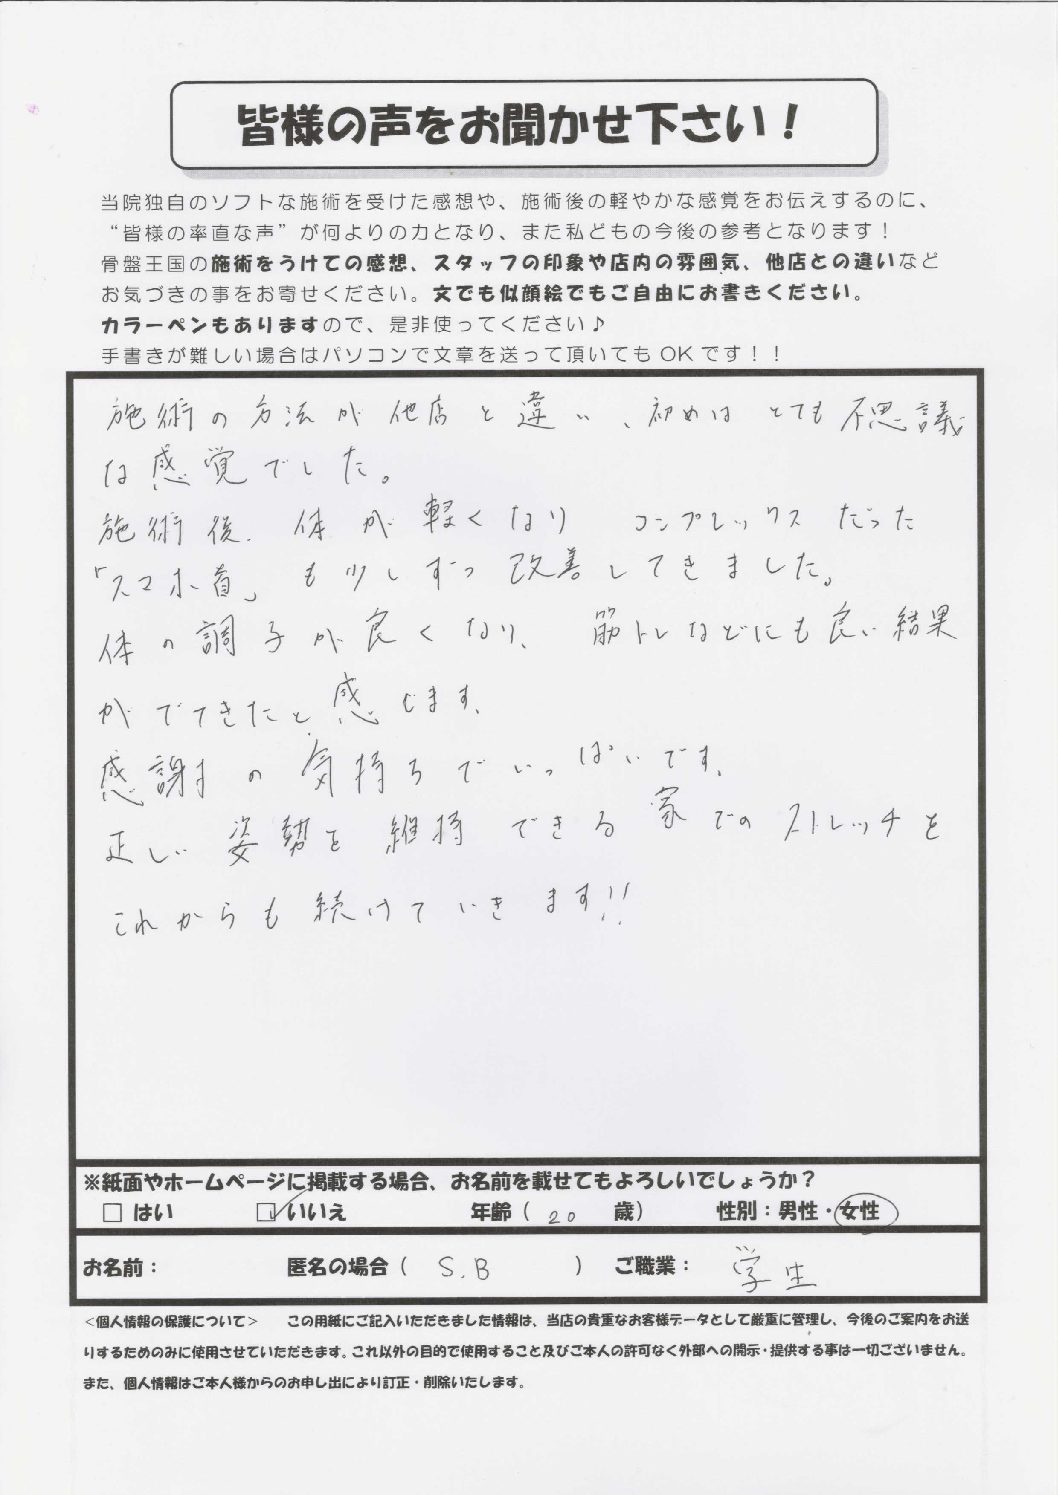 皆様の声をお聞かせ下さい！
当院独自のソフトな施術を受けた感想や、施術後の軽やかな感覚をお伝えするのに、
“皆様の率直な声”が何よりの力となり、また私どもの今後の参考となります！
骨盤王国の施術をうけての感想、スタッフの印象や店内の雰囲気、他店との違いなど
お気づきの事をお寄せください。文でも似顔絵でもご自由にお書きください。
カラーペンもありますので、是非使ってください♪
手書きが難しい場合はパソコンで文章を送って頂いてもOKです！！
施術の方法が他店と違い、初めはとても不思議
な感覚でした。
施術後、体が軽くなり コンプレックスだった
「スマホ首」も少しずつ改善してきました。
体の調子が良くなり、筋トレなどにも良い結果
がでてきたと感じます。
感謝の気持ちでいっぱいです。
正しい姿勢を維持できる家でのストレッチを
これからも続けていきます!!
※紙面やホームページに掲載する場合、お名前を載せてもよろしいでしょうか？
□ はい ☑ いいえ 年齢（ 20 歳） 性別：男性・女性
お名前： 匿名の場合（ S.B ） ご職業： 学生
＜個人情報の保護について＞ この用紙にご記入いただきました情報は、当店の貴重なお客様データとして厳重に管理し、今後のご案内をお送
りするためのみに使用させていただきます。これ以外の目的で使用すること及びご本人の許可なく外部への開示・提供する事は一切ございません。
また、個人情報はご本人様からのお申し出により訂正・削除いたします。